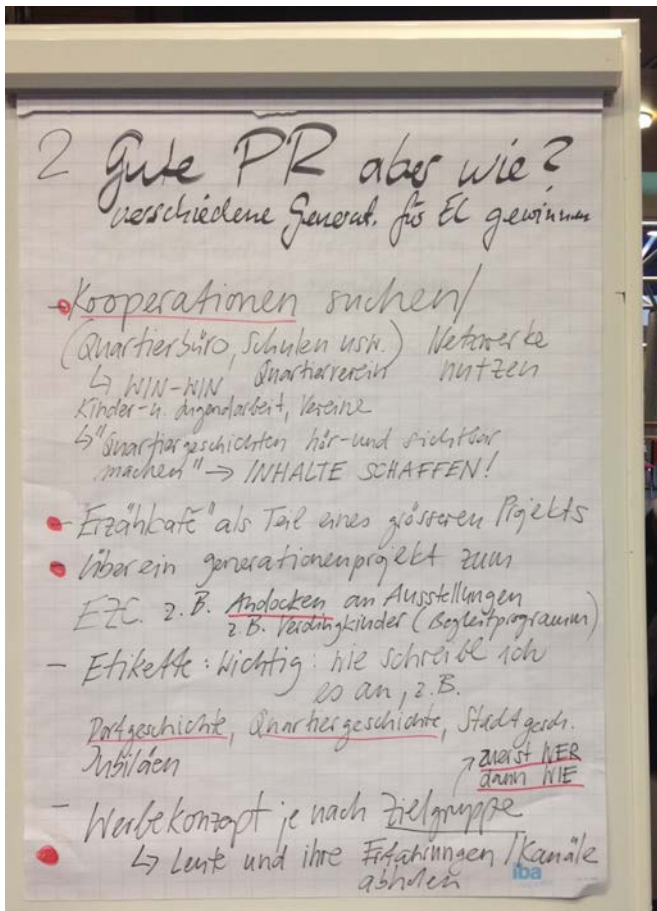 2 Gute PR aber wie?
verschiedene Generat. für EC gewinnen
- Kooperationen suchen/
(Quartierbüro, Schulen usw.) Netzwerke
↳ WIN-WIN, Quartierverein nutzen
Kinder- u. Jugendarbeit, Vereine
↳ "Quartiergeschichten hör- und sichtbar
machen" → INHALTE SCHAFFEN!
- Erzählcafé" als Teil eines grösseren Projekts
Über ein generationenprojekt zum
EZC. z.B. Andocken an Ausstellungen
z.B. Verdingkinder (Begleitprogramm)
- Etikette: Wichtig: wie schreibe ich
es an, z.B.
Dorfgeschichte, Quartiergeschichte, Stadtgesch.
Jubiläen
↗ zuerst WER
dann WIE
- Werbekonzept je nach Zielgruppe
↳ Leute und ihre Erfahrungen / Kanäle
abholen
iba